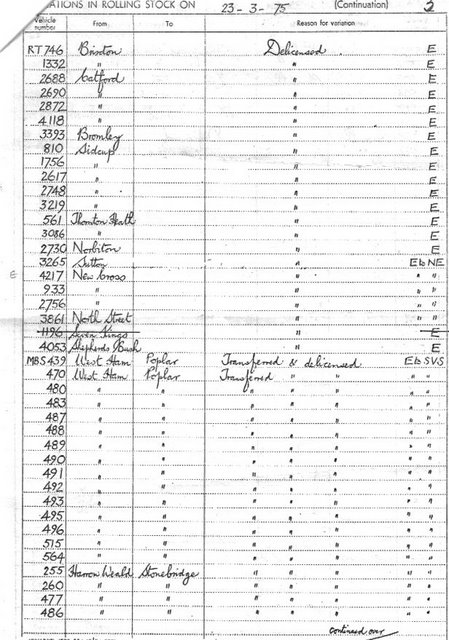 ATIONS IN ROLLING STOCK ON 23-3-75 (Continuation) 2
Vehicle number From To Reason for variation
RT 746 Brixton Delicensed E
1332 " " E
2688 Catford " E
2690 " " E
2872 " " E
4118 " " E
3393 Bromley " E
810 Sidcup " E
1756 " " E
2617 " " E
2748 " " E
3219 " " E
561 Thornton Heath " E
3086 " " E
2730 Norbiton " E
3265 Sutton " E to NE
E 4217 New Cross " " "
933 " " " "
2756 " " " "
3861 North Street " " "
1196 Seven Kings " E
4053 Shepherds Bush " E
MBS 439 West Ham Poplar Transferred & delicensed E to SVS
470 West Ham Poplar Transferred " " " "
480 " " " " " " "
483 " " " " " " "
487 " " " " " " "
488 " " " " " " "
489 " " " " " " "
490 " " " " " " "
491 " " " " " " "
492 " " " " " " "
493 " " " " " " "
495 " " " " " " "
496 " " " " " " "
515 " " " " " " "
564 " " " " " " "
255 Harrow Weald Stonebridge " " " " "
260 " " " " " " "
477 " " " " " " "
486 " " " " " " "
continued over